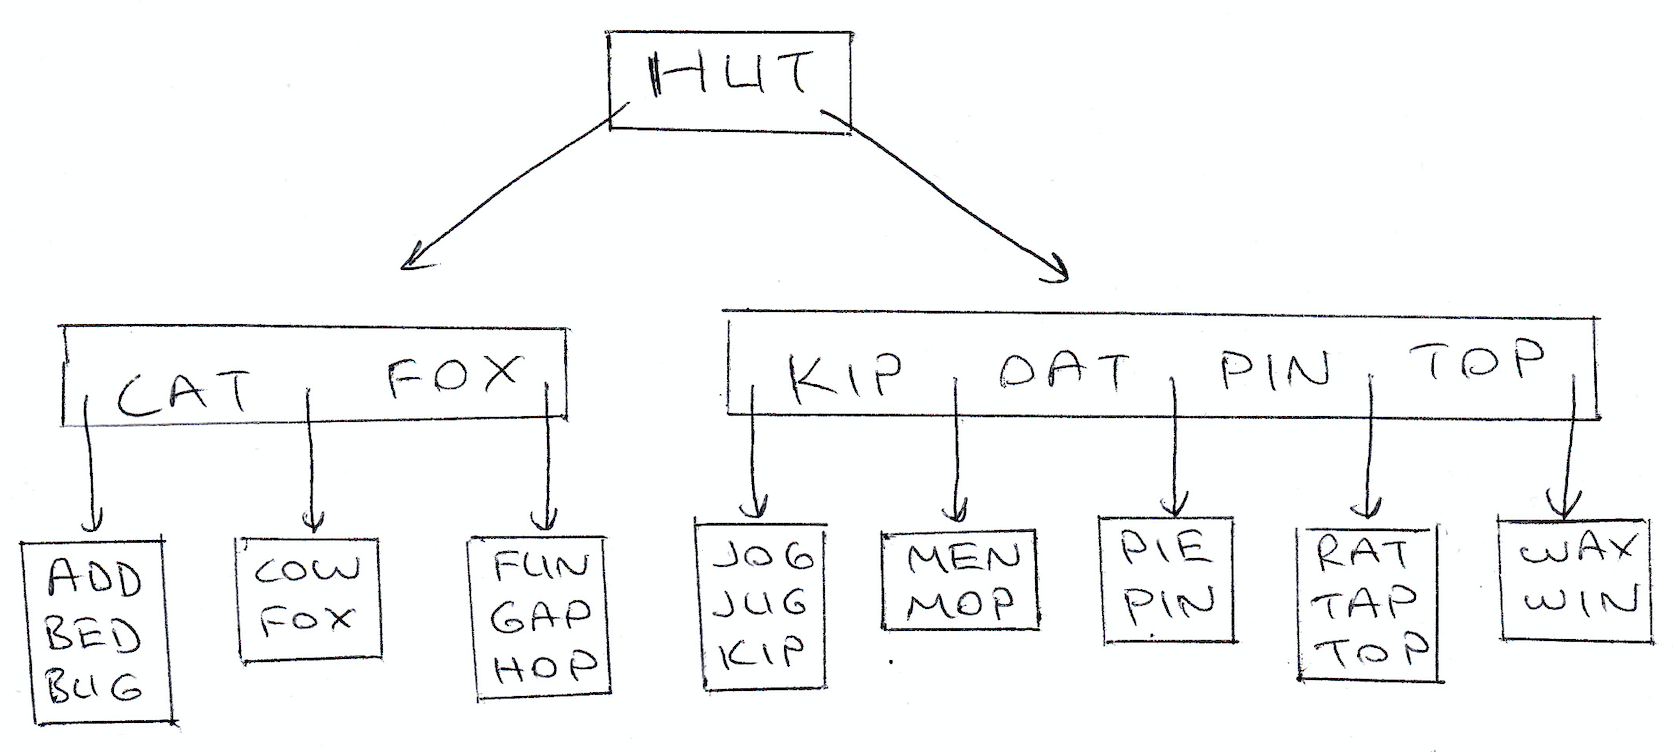 HUT
CAT FOX
KIP OAT PIN TOP
ADD
BED
BUG
COW
FOX
FUN
GAP
HOP
JOG
JUG
KIP
MEN
MOP
PIE
PIN
RAT
TAP
TOP
WAX
WIN